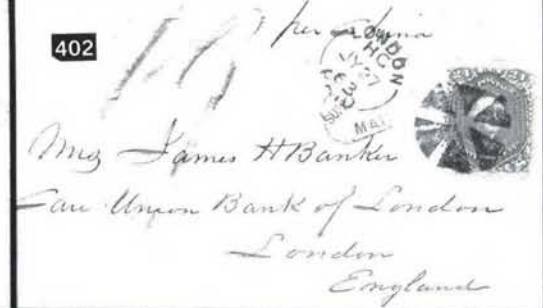 402
per China
LONDON
HC
JY 27
63
MAI
Mrs James H Banker
Care Union Bank of London
London
England